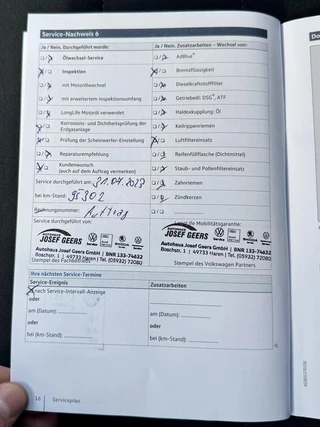 Service-Nachweis 6
Ja / Nein. Durchgeführt wurde:
Ölwechsel-Service
Inspektion
mit Motorölwechsel
mit erweitertem Inspektionsumfang
LongLife Motoröl verwendet
Korrosions- und Dichtheitsprüfung der
Erdgasanlage
Prüfung der Scheinwerfer-Einstellung
Reparaturempfehlung
Kundenwunsch
(auch auf dem Auftrag vermerken)
Service durchgeführt am:
bei km-Stand: 95302
Rechnungsnummer: Auftrag
Service durchgeführt von:
Autohaus
JOSEF GEERS
Service
Autohaus Josef Geers GmbH | BNR 133-74632
Boschstr. 1 | 49733 Haren | Tel. (05932) 72080
Stempel des Fachbetriebs
Ja / Nein. Zusatzarbeiten – Wechsel von:
AdBlue®
Bremsflüssigkeit
Dieselkraftstofffilter
Getriebeöl: DSG®, ATF
Haldexkupplung: Öl
Keilrippenriemen
Luftfiltereinsatz
Reifenfüllflasche (Dichtmittel)
Staub- und Pollenfiltereinsatz
Zahnriemen
Zündkerzen
LongLife Mobilitätsgarantie:
Autohaus
JOSEF GEERS
Service
Autohaus Josef Geers GmbH | BNR 133-74632
Boschstr. 1 | 49733 Haren | Tel. (05932) 72080
Stempel des Volkswagen Partners
Ihre nächsten Service-Termine
Service-Ereignis
nach Service-Intervall-Anzeige
oder
am (Datum):
oder
bei (km-Stand):
Zusatzarbeiten
am (Datum):
oder
bei (km-Stand):
16 Serviceplan